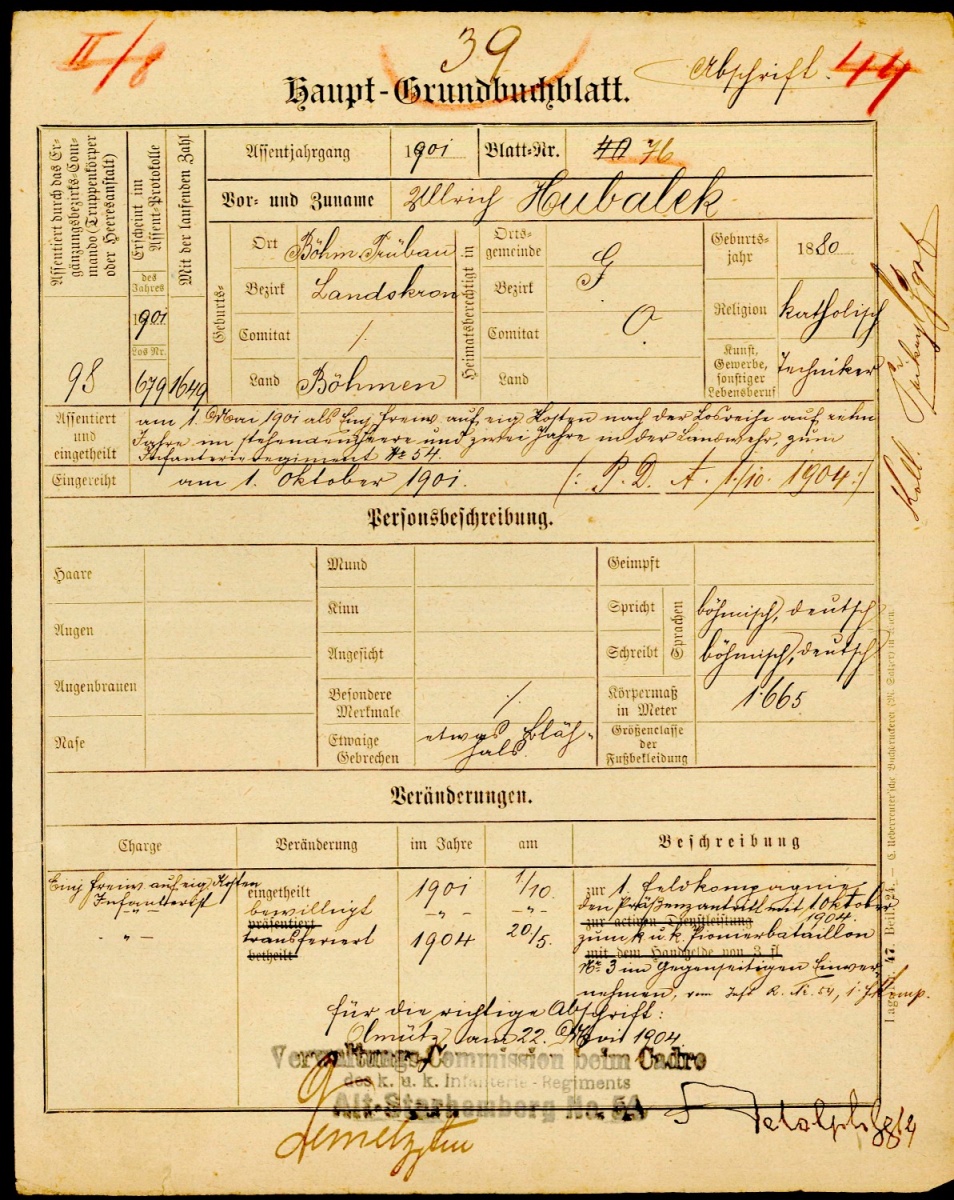 II/8
39
Abschrift.
44
Haupt-Grundbuchblatt.
Assentiert durch das Ergänzungsbezirks-Commando (Truppenkörper oder Heeresanstalt)
98
Erscheint im Assent-Protokolle
des Jahres
1901
Los Nr.
679
Mit der laufenden Zahl
1649
Assentjahrgang 1901 Blatt-Nr. 40 76
Vor- und Zuname Ullrich Hubalek
Geburts-
Ort Böhm Trübau
Bezirk Landskron
Comitat /.
Land Böhmen
Heimatsberechtigt in
Ortsgemeinde
Bezirk
Comitat
Land
Geburtsjahr 1880
Religion katholisch
Kunst, Gewerbe, sonstiger Lebensberuf Techniker
Assentiert und eingetheilt
am 1. Mai 1901 als Einj freiw auf eig Kosten nach der Losreihe auf zehn
Jahre im stehenden Heere und zwei Jahre in der Landwehr, zum
Infanterieregiment № 54.
Eingereiht am 1. Oktober 1901. (: P. D. A. 1./10. 1904 :)
Personsbeschreibung.
Haare
Augen
Augenbrauen
Nase
Mund
Kinn
Angesicht
Besondere Merkmale /.
Etwaige Gebrechen etwas Bläh-
hals.
Geimpft
Sprachen
Spricht böhmisch, deutsch
Schreibt böhmisch, deutsch
Körpermaß in Meter 1.665
Größenclasse der Fußbekleidung
Veränderungen.
Charge Veränderung im Jahre am Beschreibung
Einj freiw auf eig Kosten eingetheilt 1901 1/10. zur 1. Feldkompagnie,
Infanterist bewilligt -„- -„- den Präsenzantritt mit 1 Oktober
präsentiert zur activen Dienstleistung 1904.
-„- transferiert 1904 20/5. zum k u k. Pionierbataillon
betheilt mit dem Handgelde von 3 fl
Nr 3 im gegenseitigen Einver-
nehmen,
für die richtige Abschrift:
Olmütz, am 22. Mai 1904
Verwaltungs-Commission beim Cadre
des k. u. k. Infanterie-Regiments
Alt-Starhemberg No. 54